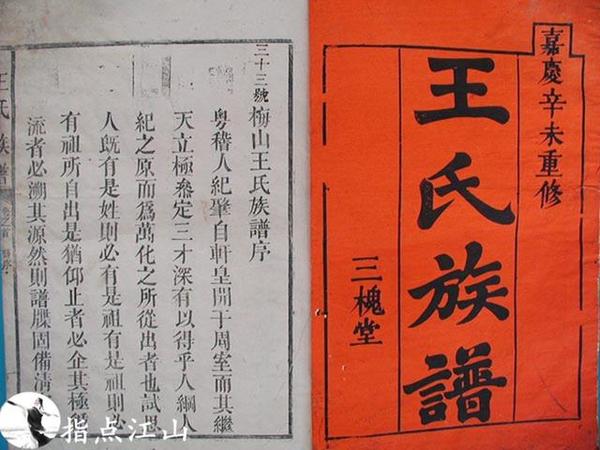 嘉慶辛未重修
王氏族譜
三槐堂
三十三號
梅山王氏族譜序
粵稽人紀肇自軒皇開于周室而其繼
天立極叅定三才深有以得乎人綱人
紀之原而爲萬化之所從出者也試
人既有是姓則必有是祖有是祖則必
有祖所自出是猶仰止者必企其極
流者必溯其源然則譜牒固備淸
王氏族譜
指点江山